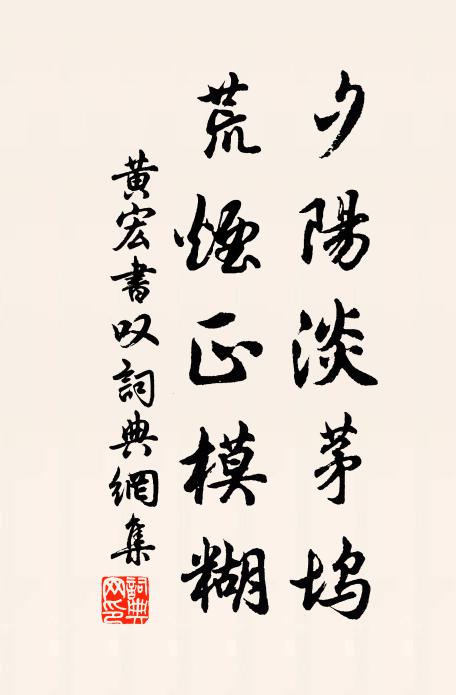 夕陽淡茅塢
荒煙正模糊
黄宏書叹詞典網集
詞典网印